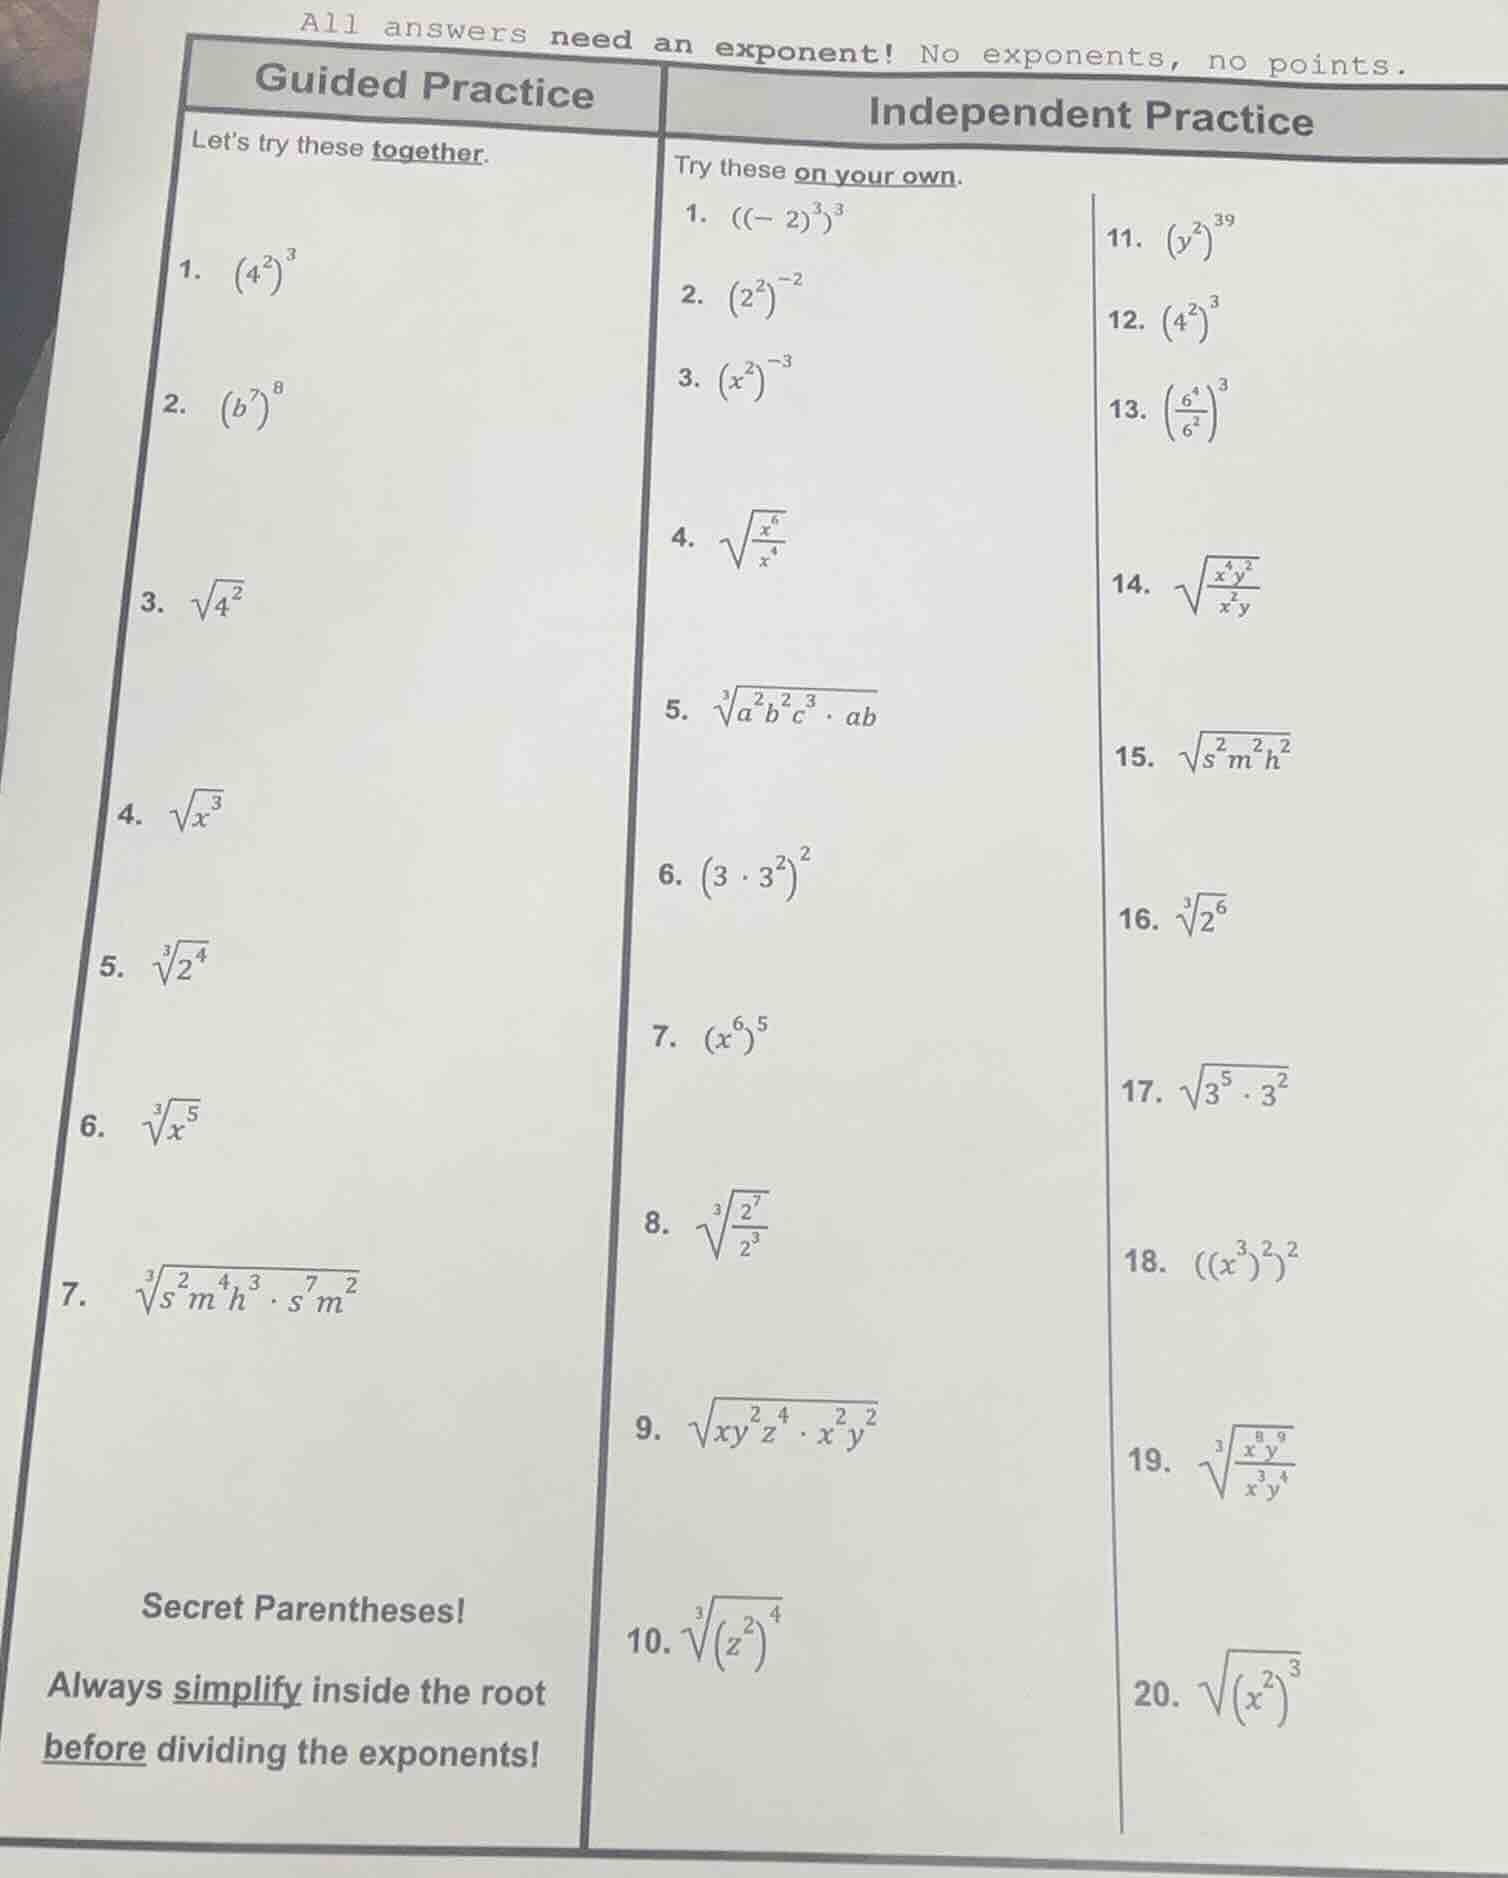 All answers need an exponent! No exponents, no points.
Guided Practice
Let's try these together.
1. (4²)³
2. (b⁷)⁸
3. √4²
4. √x³
5. ³√2⁴
6. ³√x⁵
7. ³√s²m⁴h³ · s⁷m²
Secret Parentheses!
Always simplify inside the root
before dividing the exponents!
Independent Practice
Try these on your own.
1. ((− 2)³)³
2. (2²)⁻²
3. (x²)⁻³
4. √x⁶/x⁴
5. ³√a²b²c³ · ab
6. (3 · 3²)²
7. (x⁶)⁵
8. ³√2⁷/2³
9. √xy²z⁴ · x²y²
10. ³√(z²)⁴
11. (y²)³⁹
12. (4²)³
13. (6⁴/6²)³
14. √x⁴y²/x²y
15. √s²m²h²
16. ³√2⁶
17. √3⁵ · 3²
18. ((x³)²)²
19. ³√x⁸y⁹/x³y⁴
20. √(x²)³